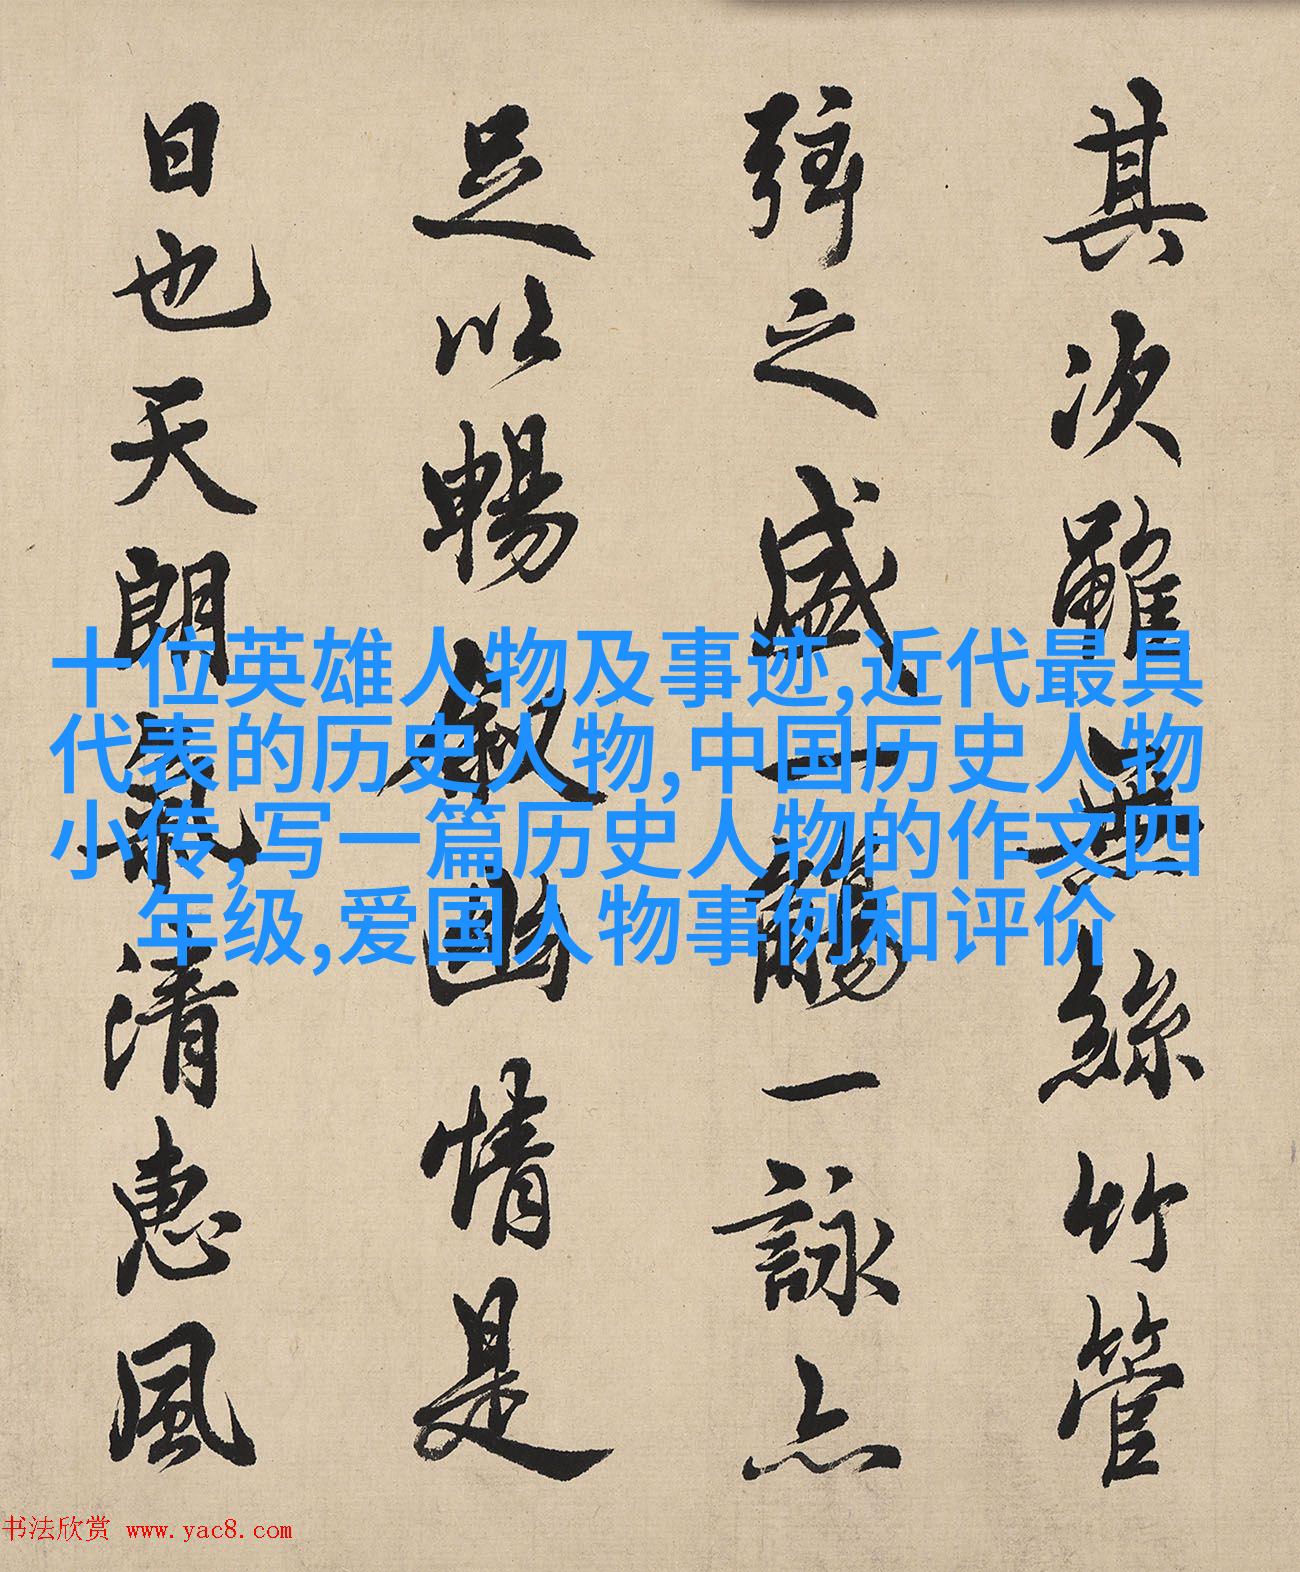 其次雖無絲竹管
弦之盛一觴一詠亦
足以暢叙幽情是
日也天朗氣清惠風
十位英雄人物及事迹,近代最具
代表的历史人物,中国历史人物
小传,写一篇历史人物的作文四
年级,爱国人物事例和评价
书法欣赏 www.yac8.com